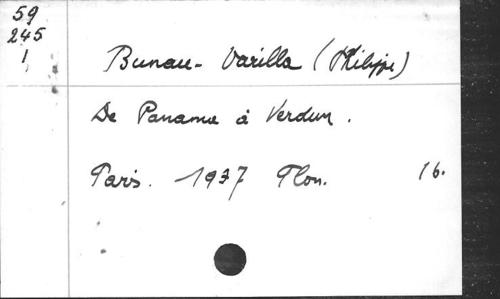 59
245
1
Bunau-Varilla (Philippe)
De Panama à Verdun.
Paris. 1937 Plon. 16.